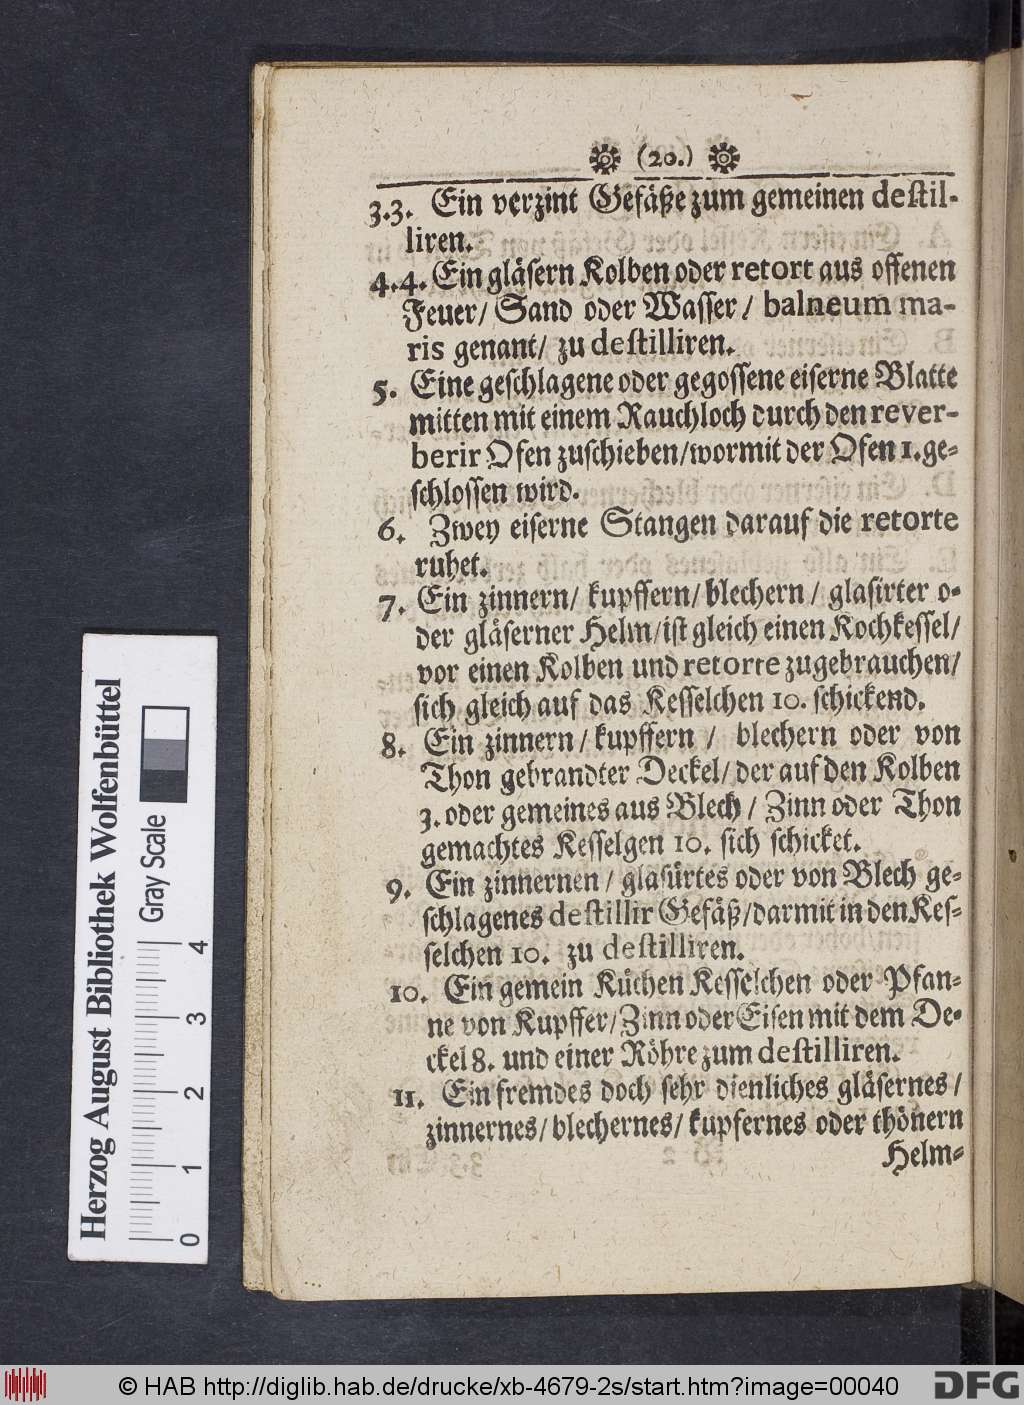 (20.)
3.3. Ein verzint Gefäße zum gemeinen destil-
liren.
4.4. Ein gläsern Kolben oder retort aus offenen
Feuer/ Sand oder Wasser / balneum ma-
ris genant/ zu destilliren.
5. Eine geschlagene oder gegossene eiserne Blatte
mitten mit einem Rauchloch durch den rever-
berir Ofen zuschieben/wormit der Ofen 1. ge-
schlossen wird.
6. Zwey eiserne Stangen darauf die retorte
ruhet.
7. Ein zinnern/ kupffern/ blechern / glasirter o-
der gläserner Helm/ist gleich einen Kochkessel/
vor einen Kolben und retorte zugebrauchen/
sich gleich auf das Kesselchen 10. schickend.
8. Ein zinnern / kupffern / blechern oder von
Thon gebrandter Deckel/ der auf den Kolben
3. oder gemeines aus Blech / Zinn oder Thon
gemachtes Kesselgen 10. sich schicket.
9. Ein zinnernen / glasürtes oder von Blech ge-
schlagenes destillir Gefäß/darmit in den Kes-
selchen 10. zu destilliren.
10. Ein gemein Küchen Kesselchen oder Pfan-
ne von Kupffer/Zinn oder Eisen mit dem De-
ckel 8. und einer Röhre zum destilliren.
11. Ein fremdes doch sehr dienliches gläsernes /
zinnernes/ blechernes/ kupfernes oder thönern
Helm-
Herzog August Bibliothek Wolfenbüttel
Gray Scale
0 1 2 3 4
© HAB http://diglib.hab.de/drucke/xb-4679-2s/start.htm?image=00040
DFG